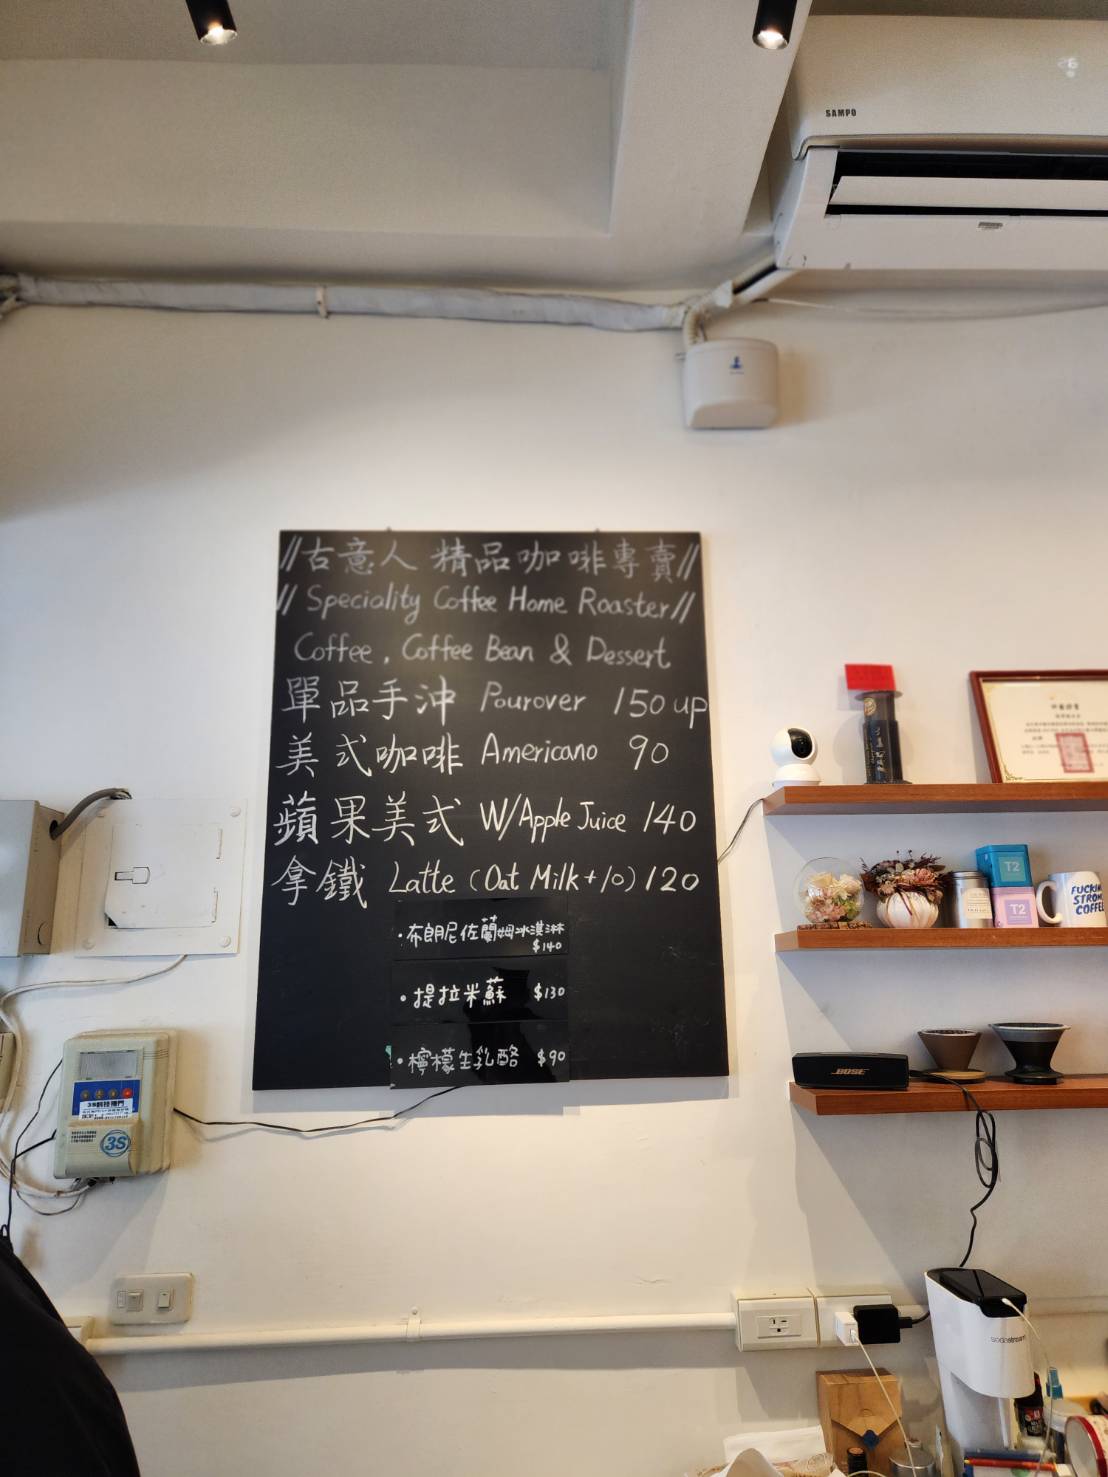 SAMPO
//古意人 精品咖啡專賣//
// Speciality Coffee Home Roaster//
Coffee, Coffee Bean & Dessert
單品手沖 Pourover 150 up
美式咖啡 Americano 90
蘋果美式 W/Apple Juice 140
拿鐵 Latte (Oat Milk+10) 120
·布朗尼佐蘭姆冰淇淋
$140
·提拉米蘇 $130
·檸檬生乳酪 $90
T2
T2
FUCKIN
STRONG
COFFEE
BOSE
3S
sodastream